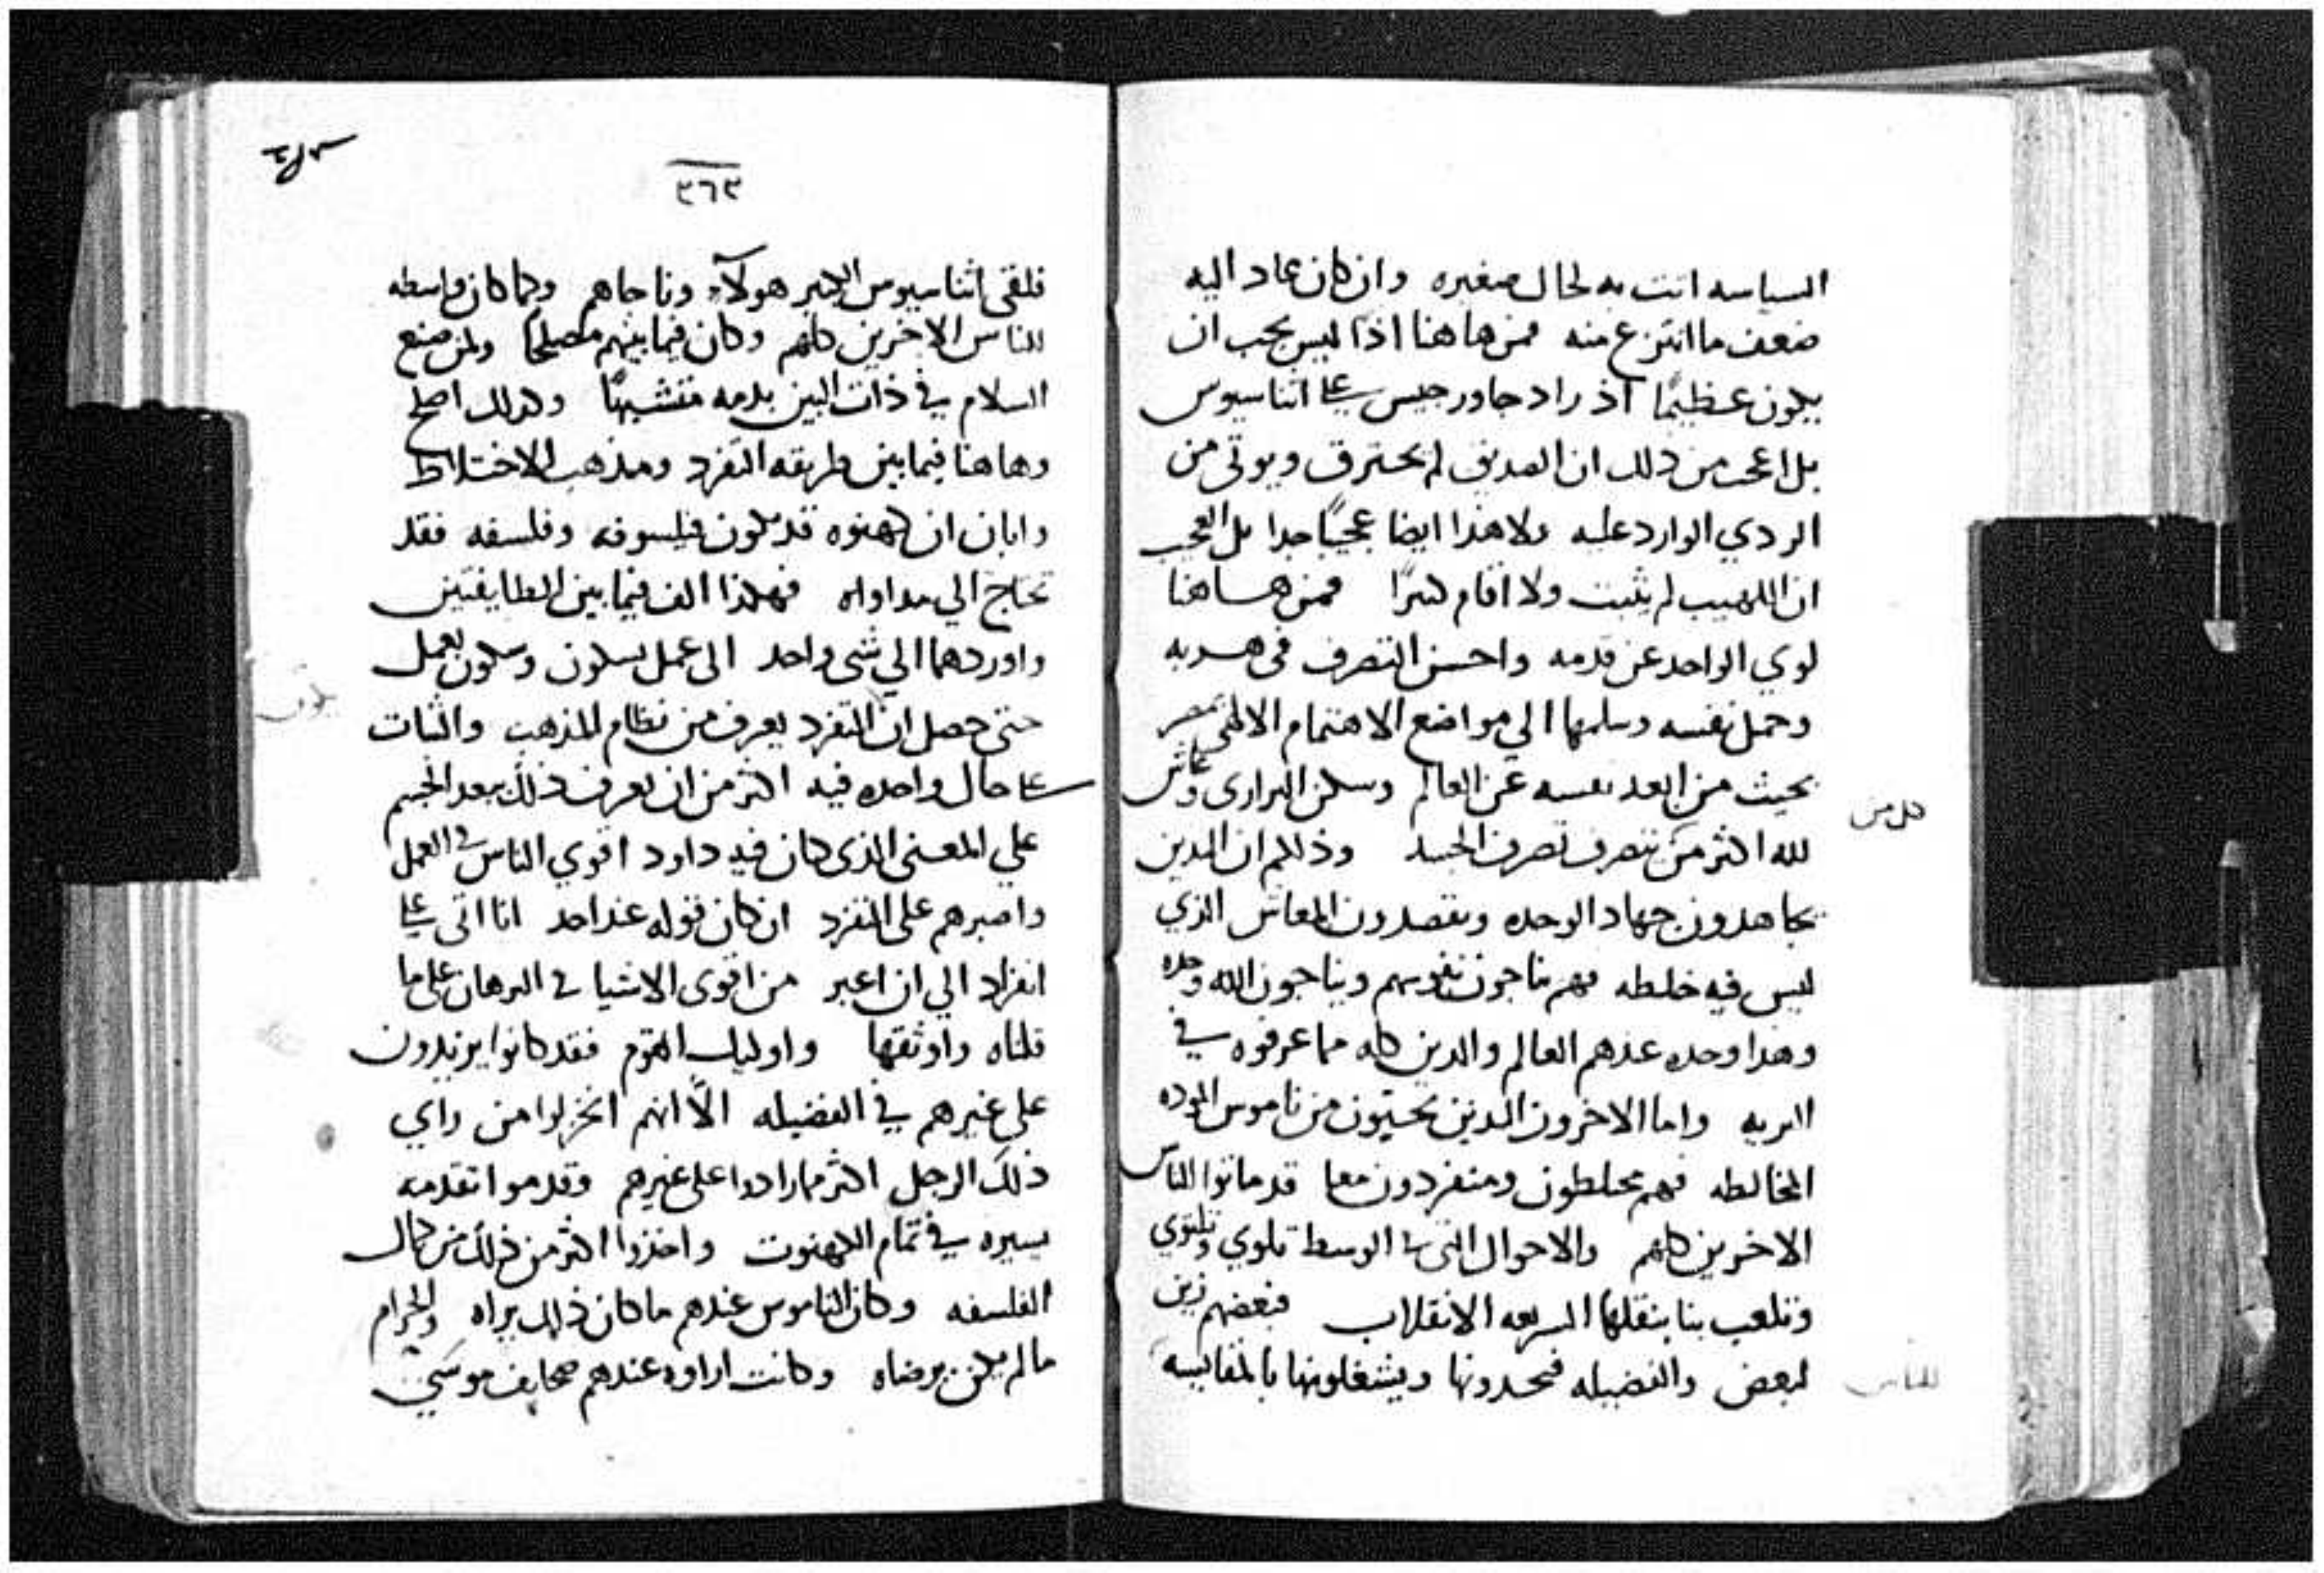 السياسه اتت به لحال صغيره وان كان عاد اليه
ضعف ما انتزع منه فمن هاهنا اذا ليس يجب ان
يكون عظيمًا اذ راد جاورجيس على اتناسيوس
بل اعجب من ذلك ان الصديق لم يحترق ويوتى من
الردي الوارد عليه ولا هذا ايضا عجيبًا جدا بل العجب
ان اللهيب لم يثبت ولا اقام كثيرًا فمن هاهنا
لوي الواحد عن قدمه واحسن التصرف في هربه
وحمل نفسه وسلمها الي مواضع الاهتمام الالهي بمصر
بحيث من ابعد نفسه عن العالم وسكن البراري وعاش
كل من
لله اكثر من يتصرف تصرف الجسد وذلكم ان الذين
يجاهدون جهاد الوحده ويقصدون المعاش الذي
ليس فيه خلطه فهم يناجون نفوسهم ويناجون الله وحده
وهذا وحده عندهم العالم والدين كله مما عرفوه في
البريه واما الاخرون الذين يحتبون من ناموس الموده
المخالطه فهم مختلطون ومنفردون معا قد ماتوا للناس
الاخرين كلهم والاحوال التى في الوسط تلوي وتلتوي
وتلعب بنا بنقلها السريعه الانقلاب فبعضهم زين
لبعض والفضيله فيحدونها ويشغلونها بالمقايسه
للناس
٣٦٣
فلقى اثناسيوس الكبير هولآء وناجاهم وكما كان واسطه
للناس الاخرين كلهم وكان فيما بينهم مصلحًا ولمن صنع
السلام في ذات البين بدمه متشبهًا وكذلك اصلح
وهاهنا فيما بين طريقه التفرد ومذهب الاختلاط
وابان ان كهنوه قد تكون فيلسوفه وفلسفه فقد
تحتاج الي مداواه فهكذا الف فيما بين الطايفتين
واوردهما الي شي واحد الى عمل بسكون وسكون بعمل
حتى حصل ان التفرد يعرف من نظام المذهب والثبات
على حال واحده فيه اكثر من ان يعرف ذلك ببعد الجسم
علي المعنى الذى كان فيه داود اقوي الناس في العمل
واصبرهم على التفرد ان كان قوله عند احد انا اتى على
انفراد الي ان اعبر من اقوى الاشيا في البرهان على ما
قلناه واوثقها واوليك القوم فقد كانوا يزيدون
على غيرهم في الفضيله الّا انهم انخزلوا من راي
ذلك الرجل اكثر مما زادوا على غيرهم وقدموا تقدمه
يسيره في تمام الكهنوت واخذوا اكثر من ذلك من كمال
الفلسفه وكان الناموس عندهم ما كان ذلك يراه والحرام
ما لم يكن يرضاه وكانت اراوه عندهم صحايف موسى